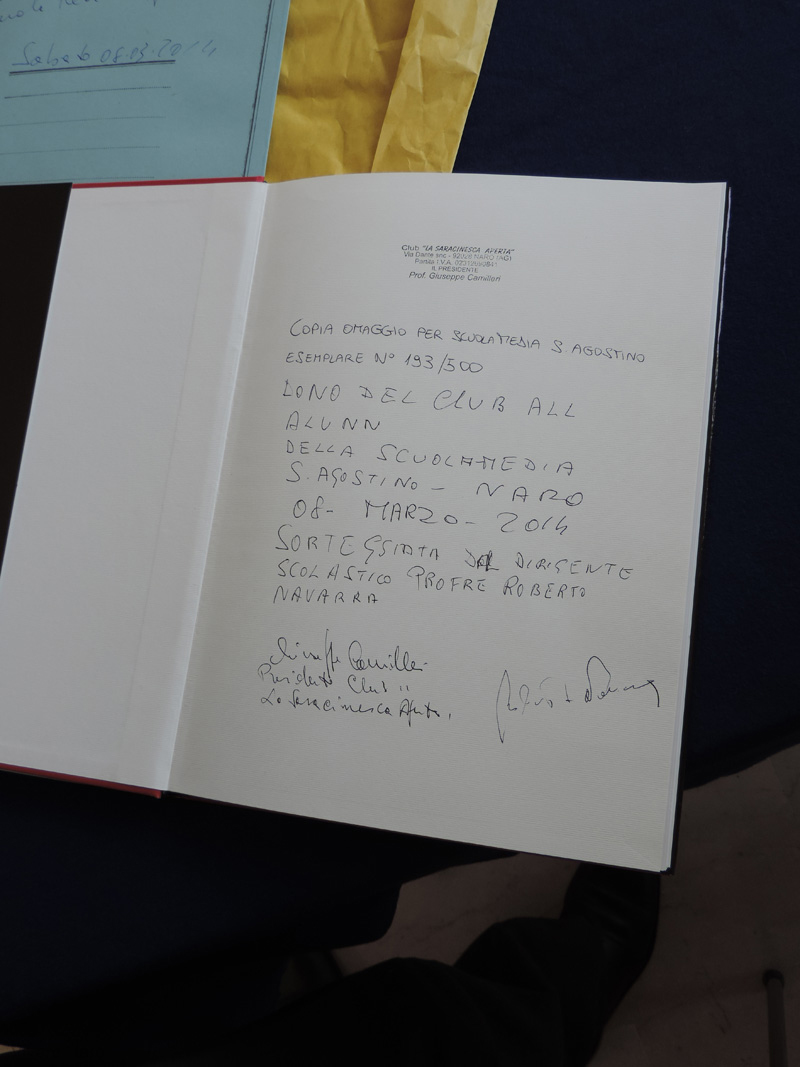 Sabato 08.03.2014
Club "LA SARACINESCA APERTA"
Via Dante snc - 92028 NARO (AG)
Partita I.V.A.
IL PRESIDENTE
Prof. Giuseppe Camilleri
COPIA OMAGGIO PER SCUOLA MEDIA S. AGOSTINO
ESEMPLARE N° 193/500
DONO DEL CLUB ALL
ALUNN
DELLA SCUOLA MEDIA
S. AGOSTINO - NARO
08- MARZO - 2014
SORTEGGIATA DAL DIRIGENTE
SCOLASTICO PROFRE ROBERTO
NAVARRA
Giuseppe Camilleri
Presidente Club "
La Saracinesca Aperta.